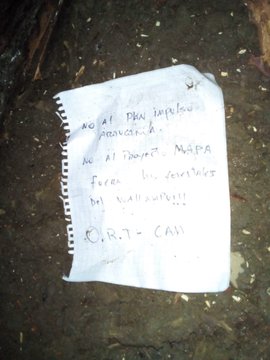 NO AL PLAN IMPULSO
ARAUCANÍA.
NO AL Proyecto MAPA
fuera las forestales
DEL WALLMAPU!!!
O.R.T - CAM